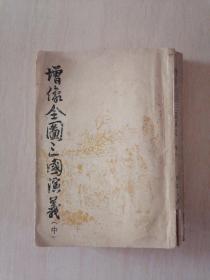 增像全圖三國演義（中）